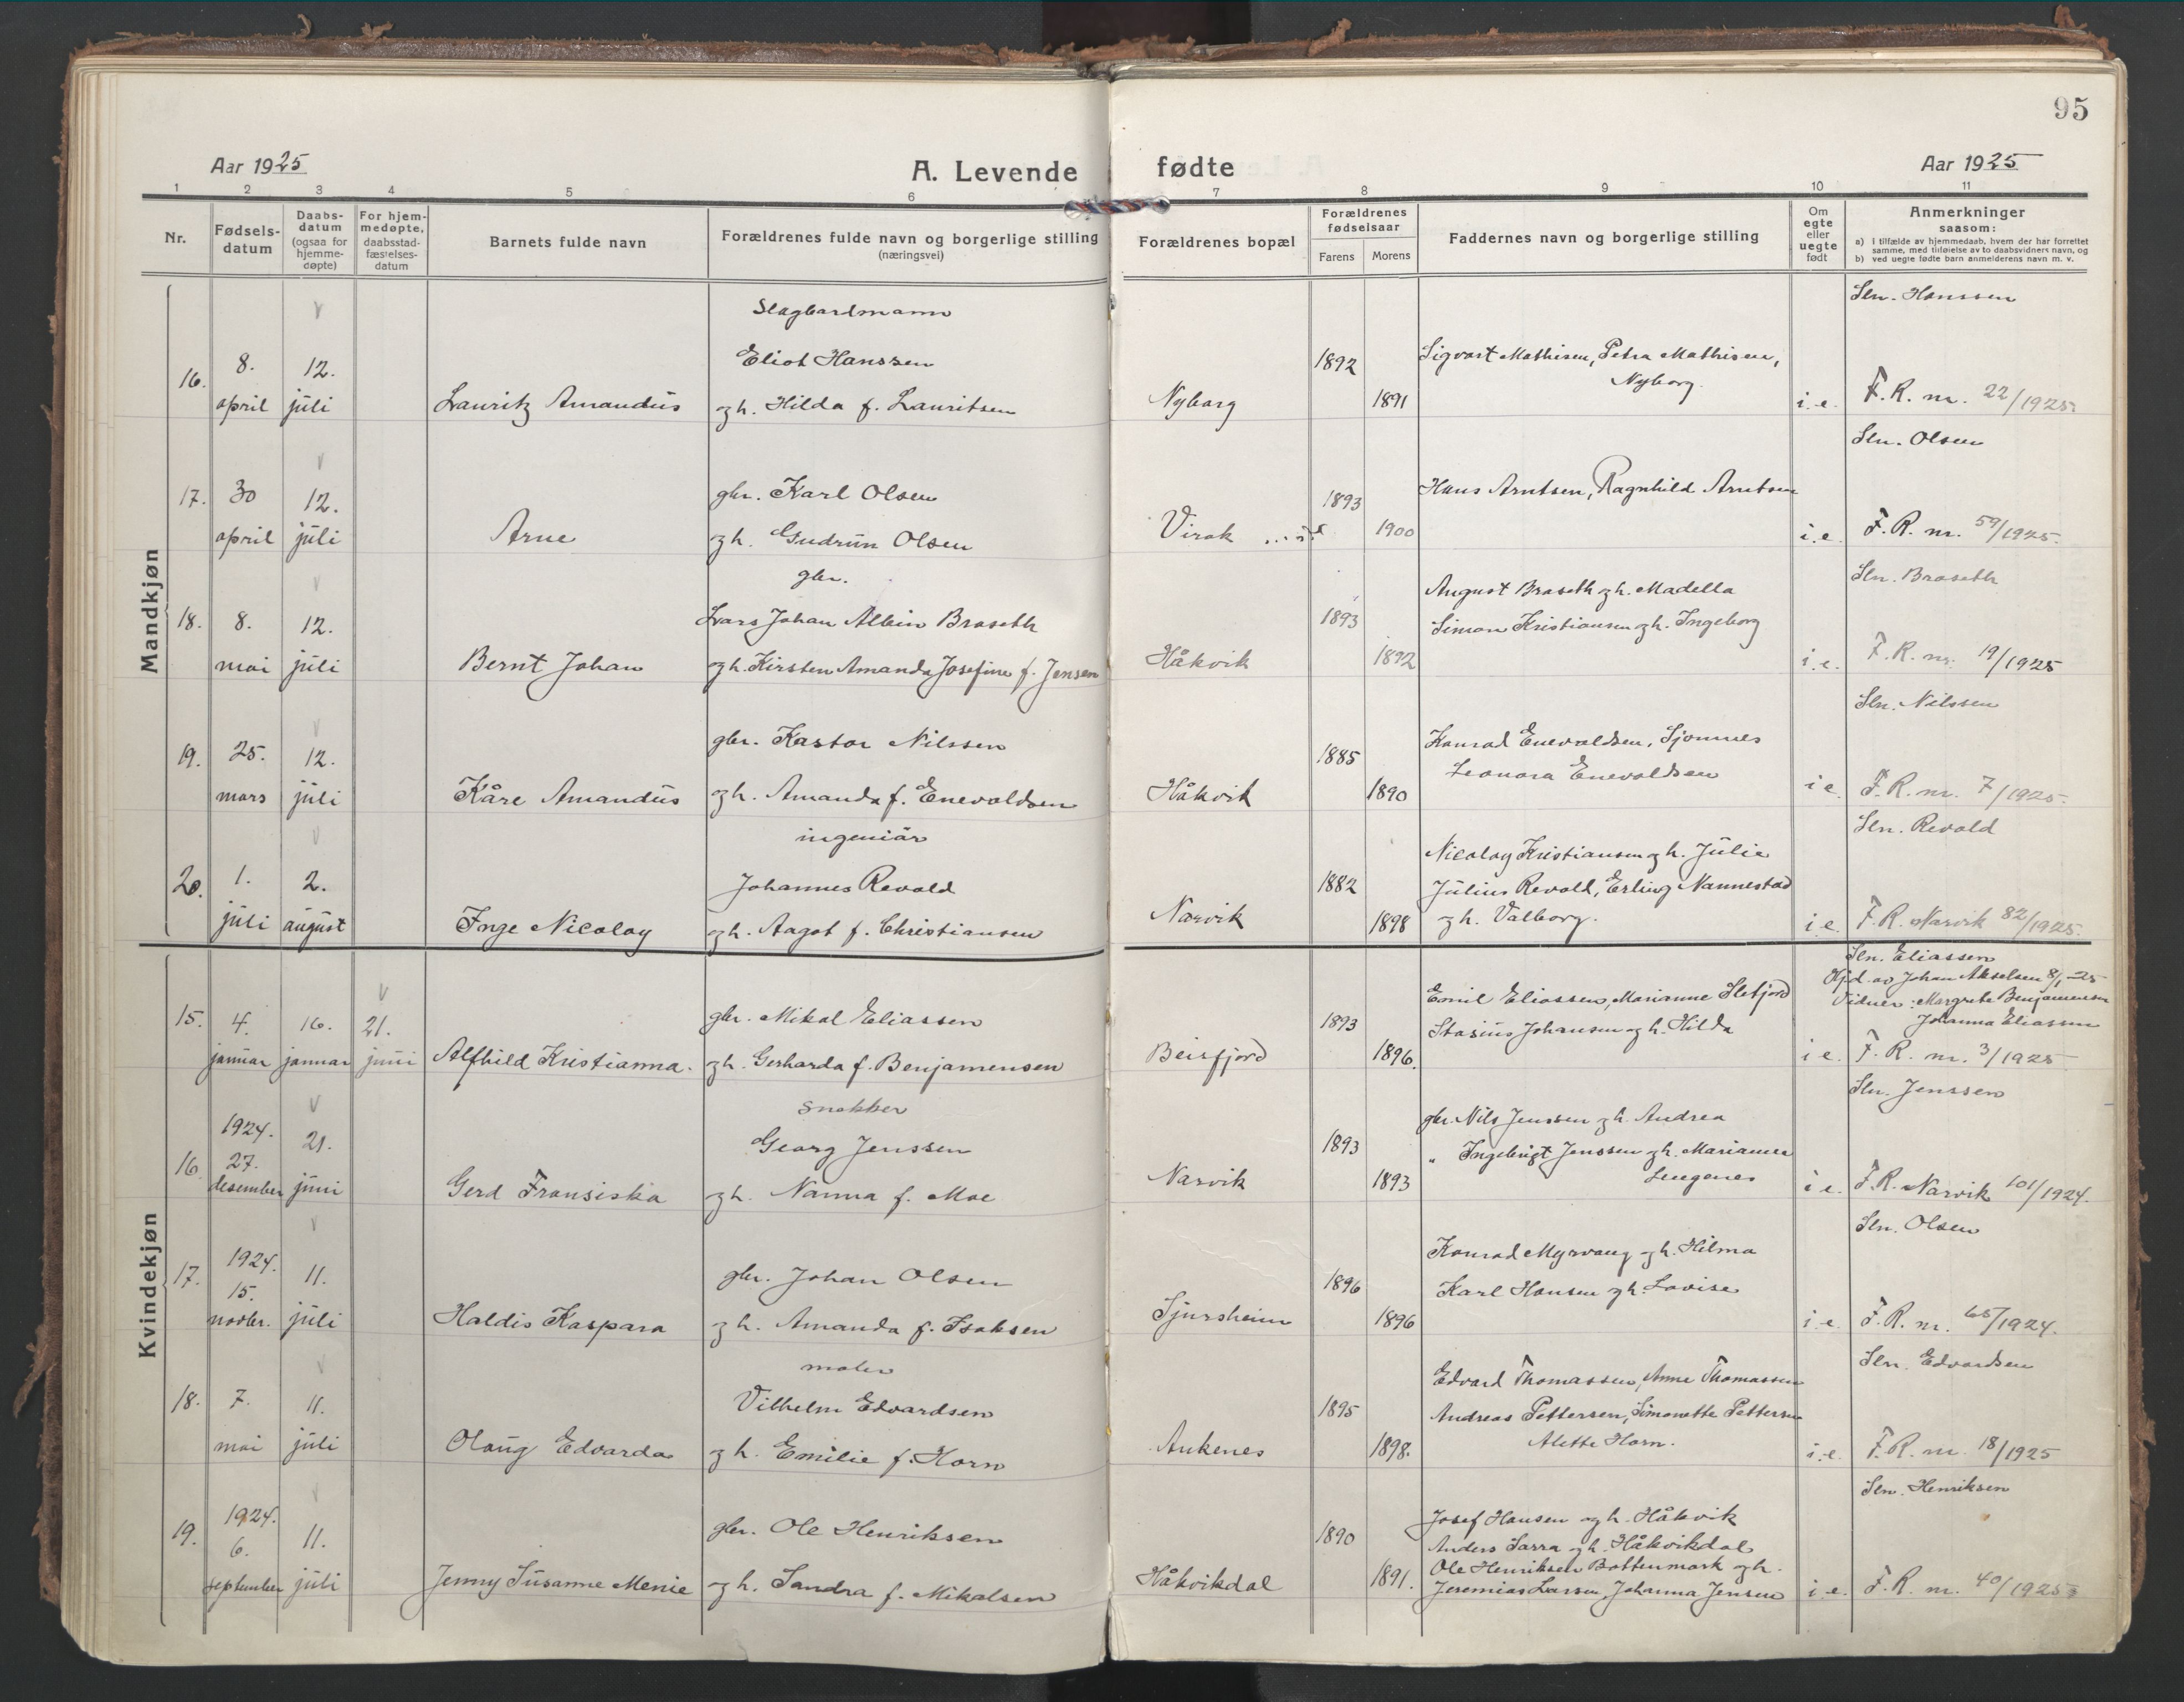 95
Aar 1925
A. Levende fødte
Aar 1925
1 2 3 4 5 6 7 8 9 10 11
Nr.
Fødsels-
datum
Daabs-
datum
(ogsaa for
hjemme-
døpte)
For hjem-
medøpte,
daabsstad-
fæstelses-
datum
Barnets fulde navn
Forældrenes fulde navn og borgerlige stilling
(næringsvei)
Forældrenes bopæl
Forældrenes
fødselsaar
Farens Morens
Faddernes navn og borgerlige stilling
Om
egte
eller
uegte
født
Anmerkninger
saasom:
a) i tilfælde av hjemmedaab, hvem der har forrettet
samme, med tilføielse av to daabsvidners navn, og
b) ved uegte fødte barn anmelderens navn m. v.
Mandkjøn
Slagbardmann
Sln. Hanssen
16. 8. 12. Eliot Hanssen 1892 Sigvart Mathisen, Petra Mathisen,
Nyborg.
april juli Lauritz Amandus og h. Hilda f. Lauritsen Nyborg 1891 i.e. F.R. nr. 22/1925.
Sln. Olsen
17. 30 12. gbr. Karl Olsen 1893 Hans Arntsen, Ragnhild Arntsen
april juli Arne og h. Gudrun Olsen Virak 1900 i.e. F.R. nr. 59/1925.
gbr.
Sln. Braseth
18. 8. 12. Lars Johan Albin Braseth 1893 August Braseth og h. Madella
Simon Kristiansen og h. Ingeborg
mai juli Bernt Johan og h. Kirsten Amanda Josefine f. Jensen Håkvik 1892 i.e. F.R. nr. 19/1925
Sln. Nilssen
19. 25. 12. gbr. Kastor Nilssen 1885 Konrad Enevoldsen, Sjomnes
Leonora Enevoldsen
mars juli Kåre Amandus og h. Amanda f. Enevoldsen Håkvik 1890 i e. F.R. nr. 7/1925.
ingeniør
Sln. Revold
Nicolay Kristiansen og h. Julie
20. 1. 2. Johannes Revold 1882 Julius Revold, Erling Nannestad
juli august Inge Nicolay og h. Aagot f. Christiansen Narvik 1898 og h. Valborg. i.e. F.R. Narvik 82/1925.
Kvindekjøn
Sln. Eliassen
Hjd. av Johan Akselsen 8/1-25
Vidner: Margrete Benjaminsen
Johanna Eliassen
15. 4. 16. 21. gbr. Mikal Eliassen 1893 Emil Eliassen, Marianne
Stasius Johansen og h. Hilda
januar januar juni Alfhild Kristianna. og h. Gerharda f. Benjamensen Beisfjord 1896. i e. F.R. nr. 3/1925
snekker
Sln. Jenssen
16. 1924. 27. 21. Georg Jenssen 1893 gbr. Nils Jenssen og h. Andrea
" Ingebrigt Jenssen og h. Marianna
Lengenes
desember juni Gerd Fransiska og h. Nanna f. Moe Narvik 1893 i e. F.R. Narvik 101/1924.
Sln. Olsen
17. 1924. 15. 11. gbr. Johan Olsen 1896 Konrad Myrvang og h. Hilma
Karl Hansen og h. Lovise
novbr. juli Haldis Kaspara og h. Amanda f. Isaksen Sjursheim 1896 i.e. F.R. nr. 65/1924.
maler
Sln. Edvardsen
18. 7. 11. Vilhelm Edvardsen 1895 Edvard Thomassen, Anne Thomassen
Andreas Pettersen, Simonette Pettersen
Alette Horn.
mai juli Olaug Edvarda og h. Emilie f. Horn Ankenes 1898. i.e. F.R. nr. 18/1925
Sln. Henriksen
19. 1924. 6. 11. gbr. Ole Henriksen 1890 Josef Hansen og h. Håkvik
Anders Sarra og h. Håkvikdal
Ole Henriksen Bottenmark og h.
september juli Jenny Susanne Menie og h. Sandra f. Mikalsen Håkvikdal 1891. Jeremias Larsen, Johanna Jensen i e. F.R. nr. 40/1925